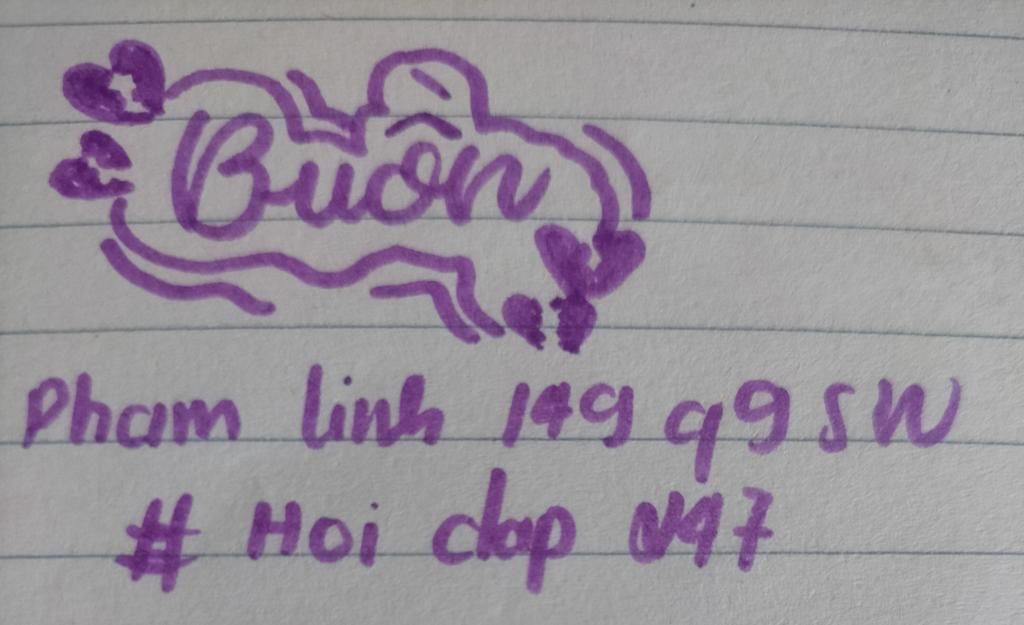 Buôn
Pham linh 149 q9 SW
# Hoi dap